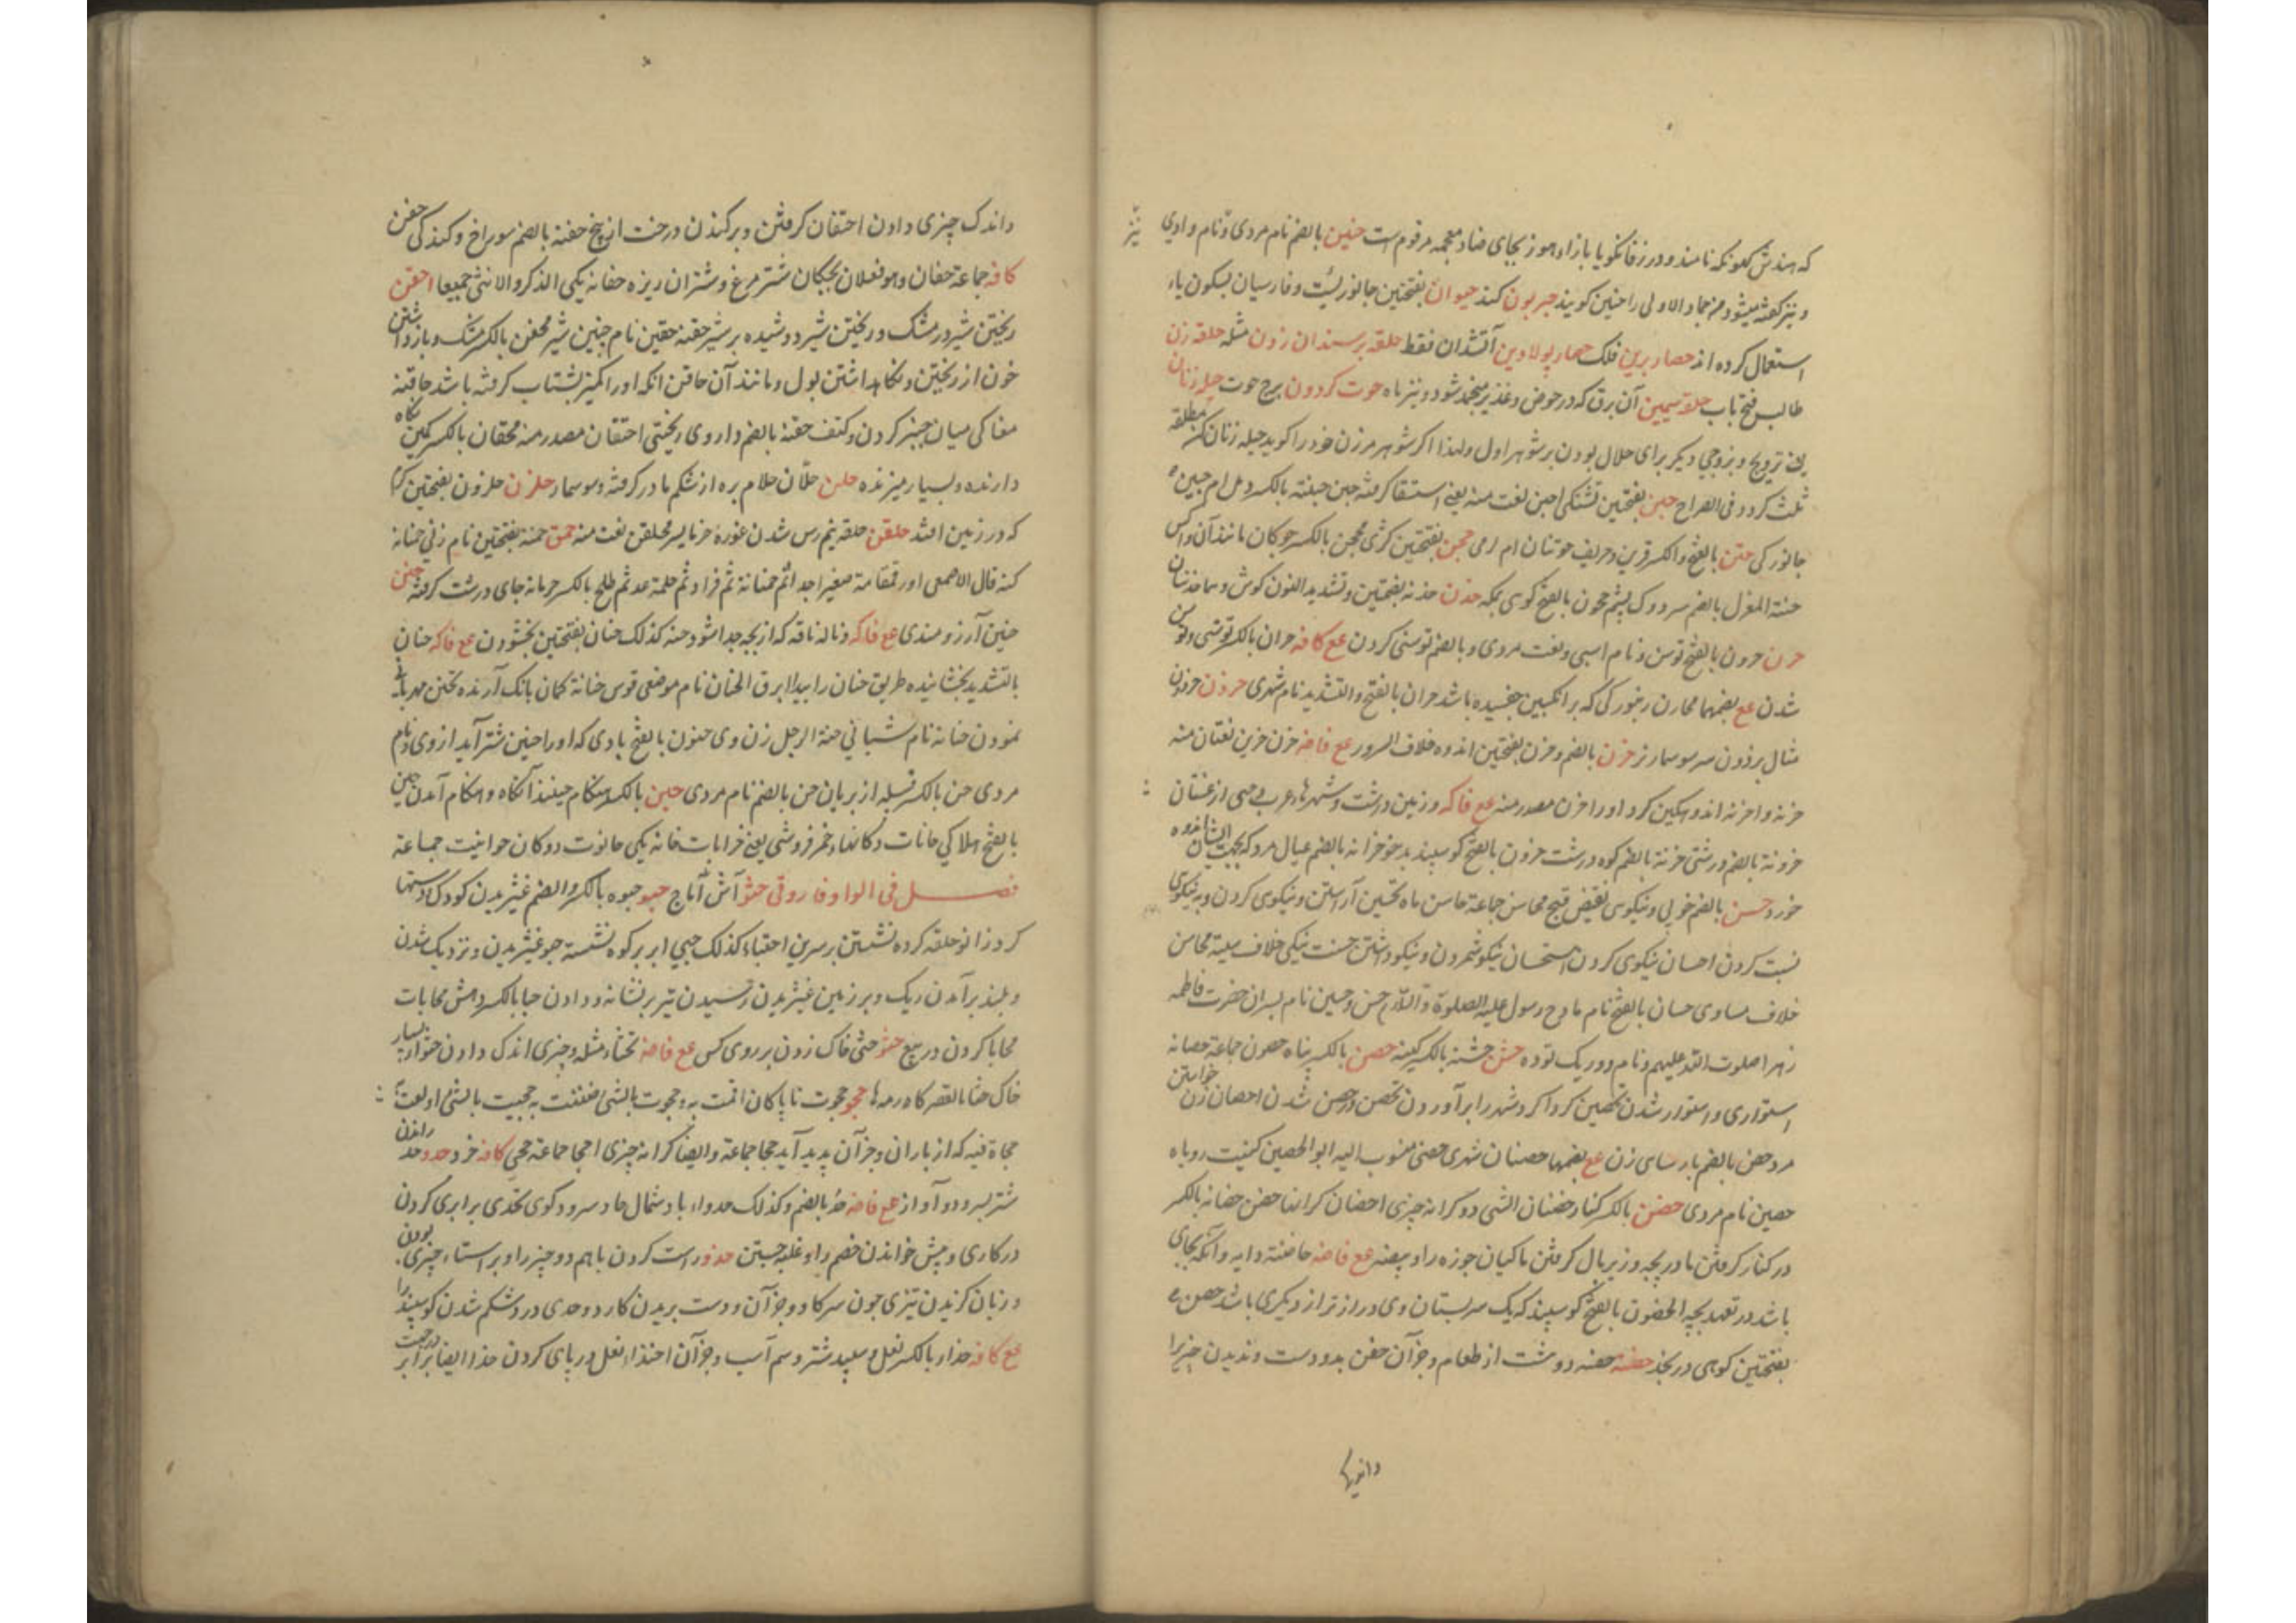 که هندش کلونکه نامند و در زفانگویا بازاء هوز بجای ضاد معجمه مرقوم است حنین بالضم نام مردی و نام وادی
و نیز گفته میشود من جماد الاولی را حنین گویند حیوان بفتحتین جانوریست و فارسیان بسکون یاء
استعمال کرده اند حصار برین فلک حصار پولادین آتشدان فقط حلقه بر سندان زدن مثله حلقه زن
طالب فتح باب حلقه سیمین آن برق که در حوض و غدیر منجمد شود و نیز ماه حوت گردون برج حوت حیله زنان
تزویج بزوجی دیگر برای حلال بودن بر شوهر اول ولهذا اگر شوهر مر زن خود را گوید حیله زنان کن مطلقه
ثلث گردد فی الصراح حبن بفتحتین تشنگی احبن نعت منه یعنی استسقا گرفته حبن حبنته بالکسر و مل ام حبین
جانورکی حتن بالفتح والکسر قرین و حریف حوتنان ام لامی حجن بفتحتین کژی محجن بالکسر چوگان مانند آن و
حجنة المغزل بالضم سر دوک پشم حجون بالفتح کوی بمکه حذن حذنه بضمتین و تشدید النون گوش و هما حذنتان
حرن حرون بالفتح توسن و نام اسبی و نعت مردی و بالضم توسنی کردن مع کافه حران بالکسر توسنی و توسن
شدن مع بضمهما محارن زنبورکی که بر انگبین چفسیده باشد حران بالفتح والتشدید نام شهری حرذن حرذون
مثال برذون سرسو سمار نر حزن بالضم و حزن بفتحتین اندوه خلاف السرور مع فاضه حزن حزین نعتان منه
حزنه و احزنه اندوهگین کرد او را حزن مصدر منه مع فاکه و زمین درشت و شهرها عرب و حیی از غسان
حزونه بالضم درشتی حزنة بالضم کوه درشت حزون بالفتح گوسپند بدخو حزانه بالضم عیال مرد که بجهت ایشان اندوه
خورد حسن بالضم خوبی و نیکوی نقیض قبح محاسن جماعة حاسن ماه تحسین آراستن و نیکوی کردن و به نیکوی
نسبت کردن احسان نیکوی کردن استحسان نیکو شمردن و نیکو داشتن حسنت نیکی خلاف سیئة محاسن
خلاف مساوی حسان بالفتح نام مادح رسول علیه الصلوة و السلام حسن و حسین نام پسران حضرت فاطمه
زهرا صلوت الله علیهم و نام دو ریک توده حشن حشنة بالکسر کینه حصن بالکسر پناه حصون جماعة حصانه
استواری و استوار شدن تحصین گردا گرد شهر را برآوردن تحصن در حصن شدن احصان زن خواستن
مرد حصن بالضم پارسای زن مع بضمهما حصنان شهری حصنی منسوب الیه ابو الحصین کنیت روباه
حصین نام مردی حضن بالکسر کنار حضنان الشی دو کرانه چیزی احضان کرانها حضن حضانه بالکسر
در کنار گرفتن مادر بچه و زیر بال گرفتن ماکیان جوزه را و بیضه مع فاضه حاضنة دایه و آنکه بجای
باشد در تعهد بچه الحضون بالفتح گوسپند که یک سر پستان وی دراز تر از دیگری باشد حضن
بفتحتین کوهی در نجد حفنه حفنه دو مشت از طعام و جز آن حفن بدو دست و ندیدن چیز را
و اندک چیزی دادن احتفان گرفتن و برکندن درخت از بیخ حفنه بالضم سوراخ و کندگی حفن
کافه جماعة حفان وهو فعلان بچگان شتر مرغ و شتران ریزه حفانه یکی الذکر والانثی جمیعا احقن
ریختن شیر در مشک و ریختن شیر دوشیده بر شیر حقنه حقین نام چنین شیر محقن بالکسر مشک و باز داشتن
خون از ریختن و نگاهداشتن بول و مانند آن حاقن آنکه او را کمیز بشتاب گرفته باشد حاقنه
مغاکی میان چنبر گردن و کتف حقنه بالضم داروی ریختی احتقان مصدر منه محقان بالکسر کمیز نگاه
دارنده و بسیار میزنده حلن حلان حلام بره از شکم مادر گرفته و سوسمار حلزن حلزون بفتحتین کرم
که در زمین افتد حلقن حلقه نیم رس شدن غوره خرما بسر محلقن نعت منه حمن حمنه بفتحتین نام زنی حمنانه
کنه قال الاصمعی اوره قمقامة صغیر اجدا ثم حمنانة ثم قراد ثم حلمة عد ثم طلح بالکسر حرمانه جای درشت گرفته حنن
حنین آرزومندی مع فاکه و ناله ناقه که از بچه جدا شود حنه کذلک حنان بفتحتین بخشودن مع فاکه حنان
بالتشدید بخشاینده طریق حنان راه پیدا ابرق الحنان نام موضعی قوس حنانة کمان بانگ آرنده تحنن مهربانی
نمودن حنانه نام شبانی حنة الرجل زن وی حنون بالفتح بادی که او را حنین شتر آید از وی و نام
مردی حن بالکسر قبیله از پریان حن بالضم نام مردی حین بالکسر هنگام حینئذ آنگاه و هنگام آمدن حین
بالفتح هلاکی حانات دکانها و خمر فروشی یعنی خرابات خانه یکی حانوت دوکان حوانیت جماعة
فصل فی الواو فاروقی حثو آش آتاج حبو حبوه بالکسر والضم غیژیدن کودک و دستها
گرد زانو حلقه کرده نشستن بر سرین احتباء کذلک حبی ابر بر کوه نشسته حبو غیژیدن و نزدیک شدن
و بلند بر آمدن ریک و بر زمین غیژیدن و رسیدن تیر بر نشانه و دادن حبا بالکسر دهش محابات
محابا کردن در بیع حثو حثی خاک زدن بر روی کس مع فاضه تحثاء مثله و چیزی اندک دادن حثواء بسیار
خاک حثا بالقصر کاه رمه ها حجو حجوت تا پاکان اقمت به و حجوت بالشی ضننت به حجیت بالشی او لعت
حجاة قبه که از باران و جز آن پدید آید حجا جماعة وایضا کرانه چیزی احجا جماعة حجی کافه خرد حدو حد راندن
شتر بسرود و آواز مع فاضه حد بالضم و کذلک حدواء باد شمال حاد سرود گوی تحدی برابری کردن
در کاری و پیش خواندن خصم را و غلبه جستن حذو راست کردن با هم دو چیز را و بر استاء چیزی بودن
و زبان گزیدن تیزی چون سرکا و جز آن و دست بریدن کارد و حدی در دشکم شدن گوسپند را
مع کافه حذاء بالکسر نعل و سپید شتر و سم اسب و جز آن احتذاء نعل در پای کردن حذا ایضا برابر